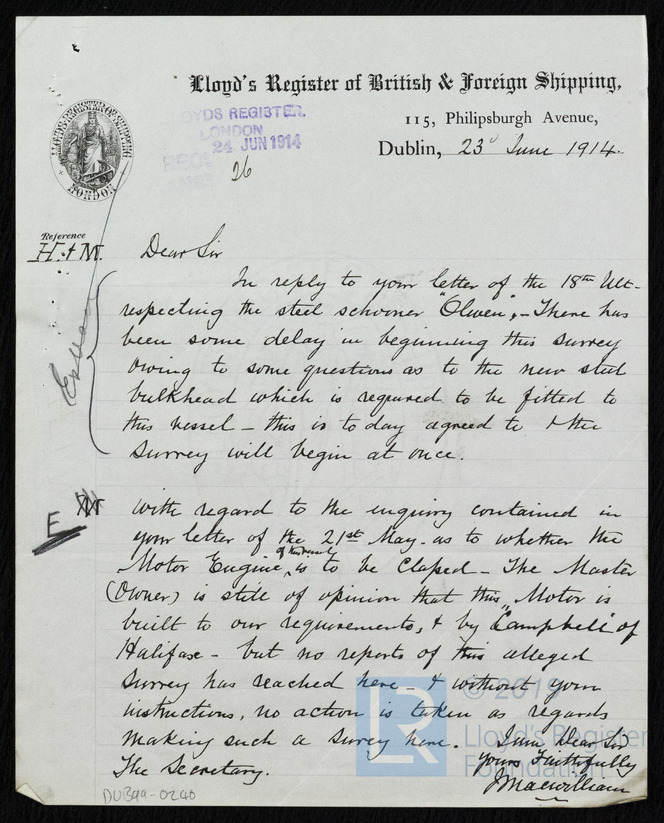 Lloyd's Register of British & Foreign Shipping,
115, Philipsburgh Avenue,
Dublin, 23d June 1914.
LLOYD'S REGISTER OF SHIPPING
LONDON
LOYDS REGISTER.
LONDON
24 JUN 1914
REC
26
Reference
H. & M.
Dear Sir
In reply to your letter of the 18th Ult-
respecting the steel schooner "Olwen",- There has
been some delay in beginning this survey
owing to some questions as to the new steel
bulkhead which is required to be fitted to
this vessel - this is to day agreed to & the
survey will begin at once.
E
With regard to the enquiry contained in
your letter of the 21st May. as to whether the
Motor Engine, of this vessel is to be Classed - The Master
(Owner) is still of opinion that this, Motor is
built to our requirements, & by "Campbell" of
Halifax - but no reports of this alleged
survey has reached here - & without your
instructions, no action is taken as regards
making such a survey here. I am Dear Sir
Yours Faithfully
The Secretary. J Macwilliam
DUB99-0240
LR
© 2019
Lloyd's Register
Foundation